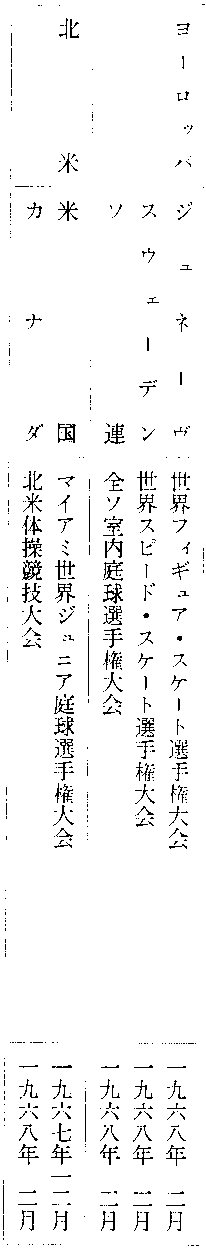 ヨーロッパ ジュネーヴ 世界フィギュア・スケート選手権大会 一九六八年 二月
スウェーデン 世界スピード・スケート選手権大会 一九六八年 二月
ソ連 全ソ室内庭球選手権大会 一九六八年 二月
北米 米国 マイアミ世界ジュニア庭球選手権大会 一九六七年一二月
カナダ 北米体操競技大会 一九六八年 二月